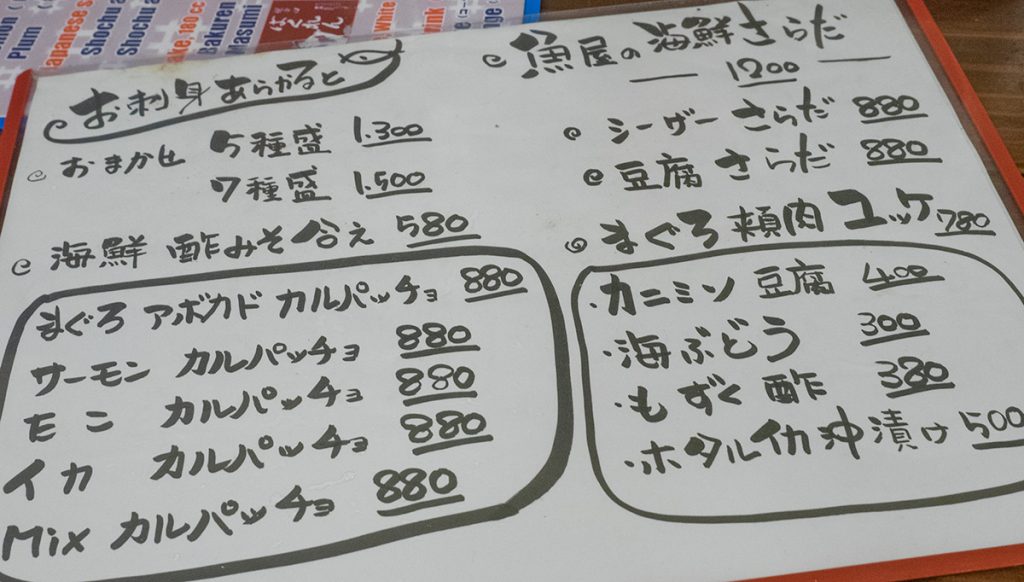 お刺身あらかると
おまかせ 5種盛 1.300
7種盛 1.500
海鮮 酢みそ合え 580
まぐろ アボカド カルパッチョ 880
サーモン カルパッチョ 880
たこ カルパッチョ 880
イカ カルパッチョ 880
Mix カルパッチョ 880
魚屋の海鮮さらだ
1200
シーザーさらだ 880
豆腐さらだ 880
まぐろ頬肉ユッケ 780
・カニミソ豆腐 400
・海ぶどう 300
・もずく酢 380
・ホタルイカ沖漬け 500
Plum
Japanese s
Shochu a
Shochu
Sake
Gakuren
Masumi
White